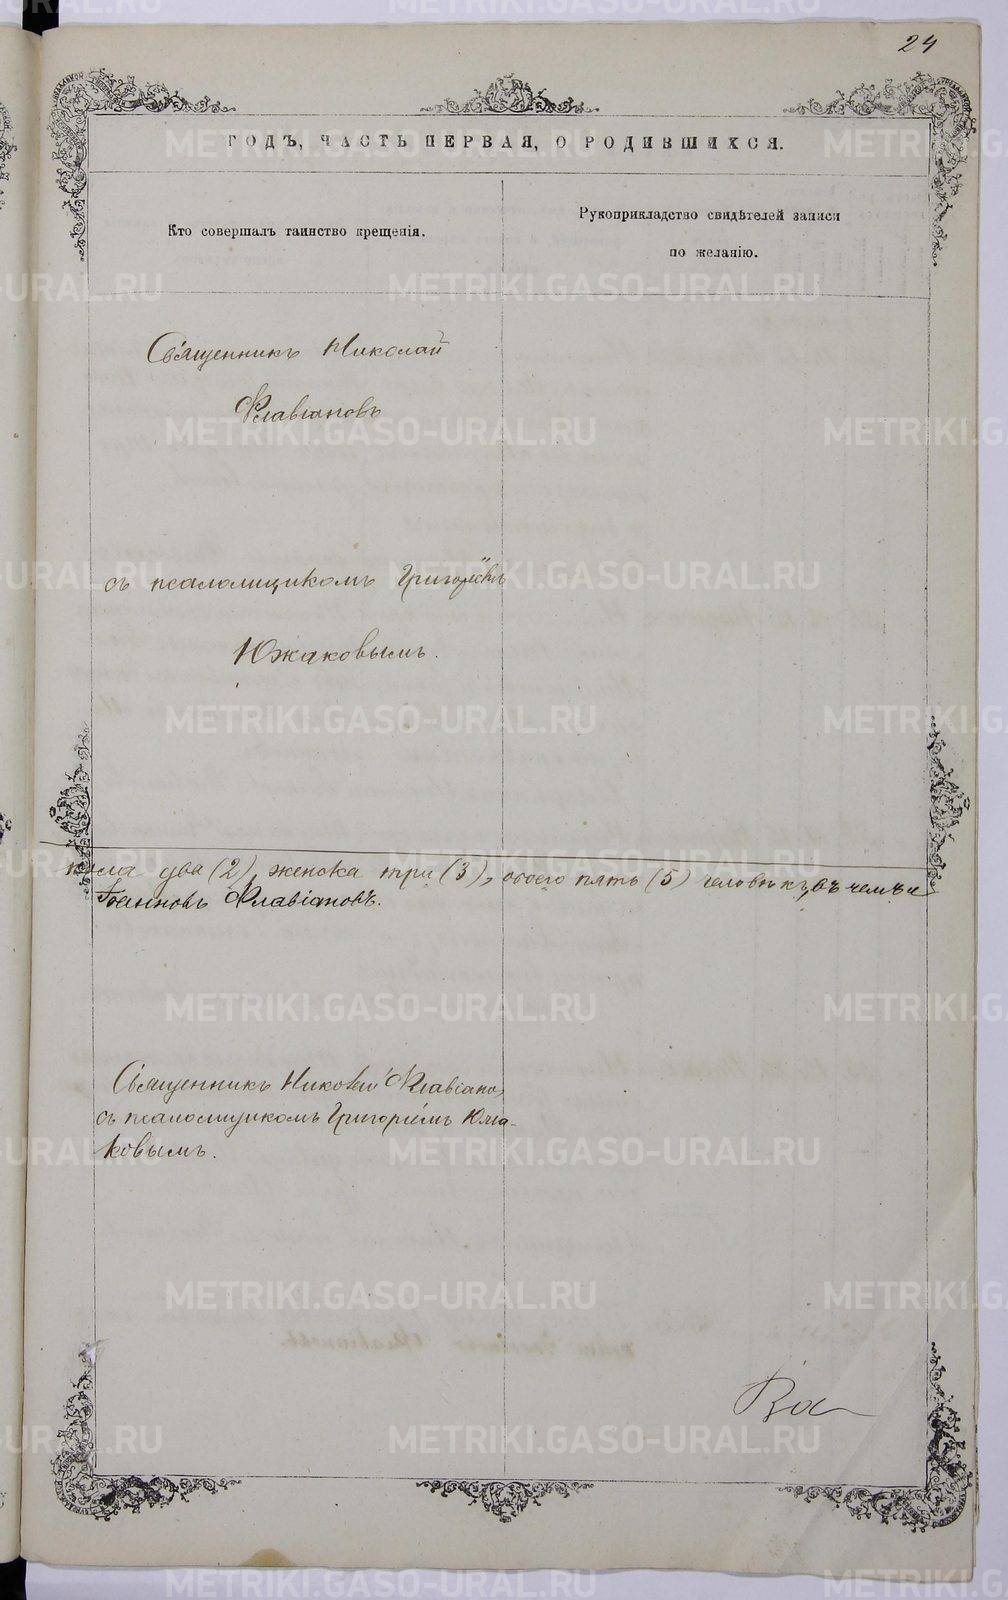 24
ГОДЪ, ЧАСТЬ ПЕРВАЯ, О РОДИВШИХСЯ.
Кто совершалъ таинство крещенія.
Рукоприкладство свидѣтелей записи
по желанію.
Священникъ Николай
Флавіановъ
съ псаломщикомъ Григоріемъ
Южаковымъ.
пола два (2), женска три (3), обоего пять (5) человѣкъ, въ чемъ и
Флавіановъ.
Священникъ Николай Флавіановъ
съ псаломщикомъ Григоріемъ Южа-
ковымъ.
METRIKI.GASO-URAL.RU